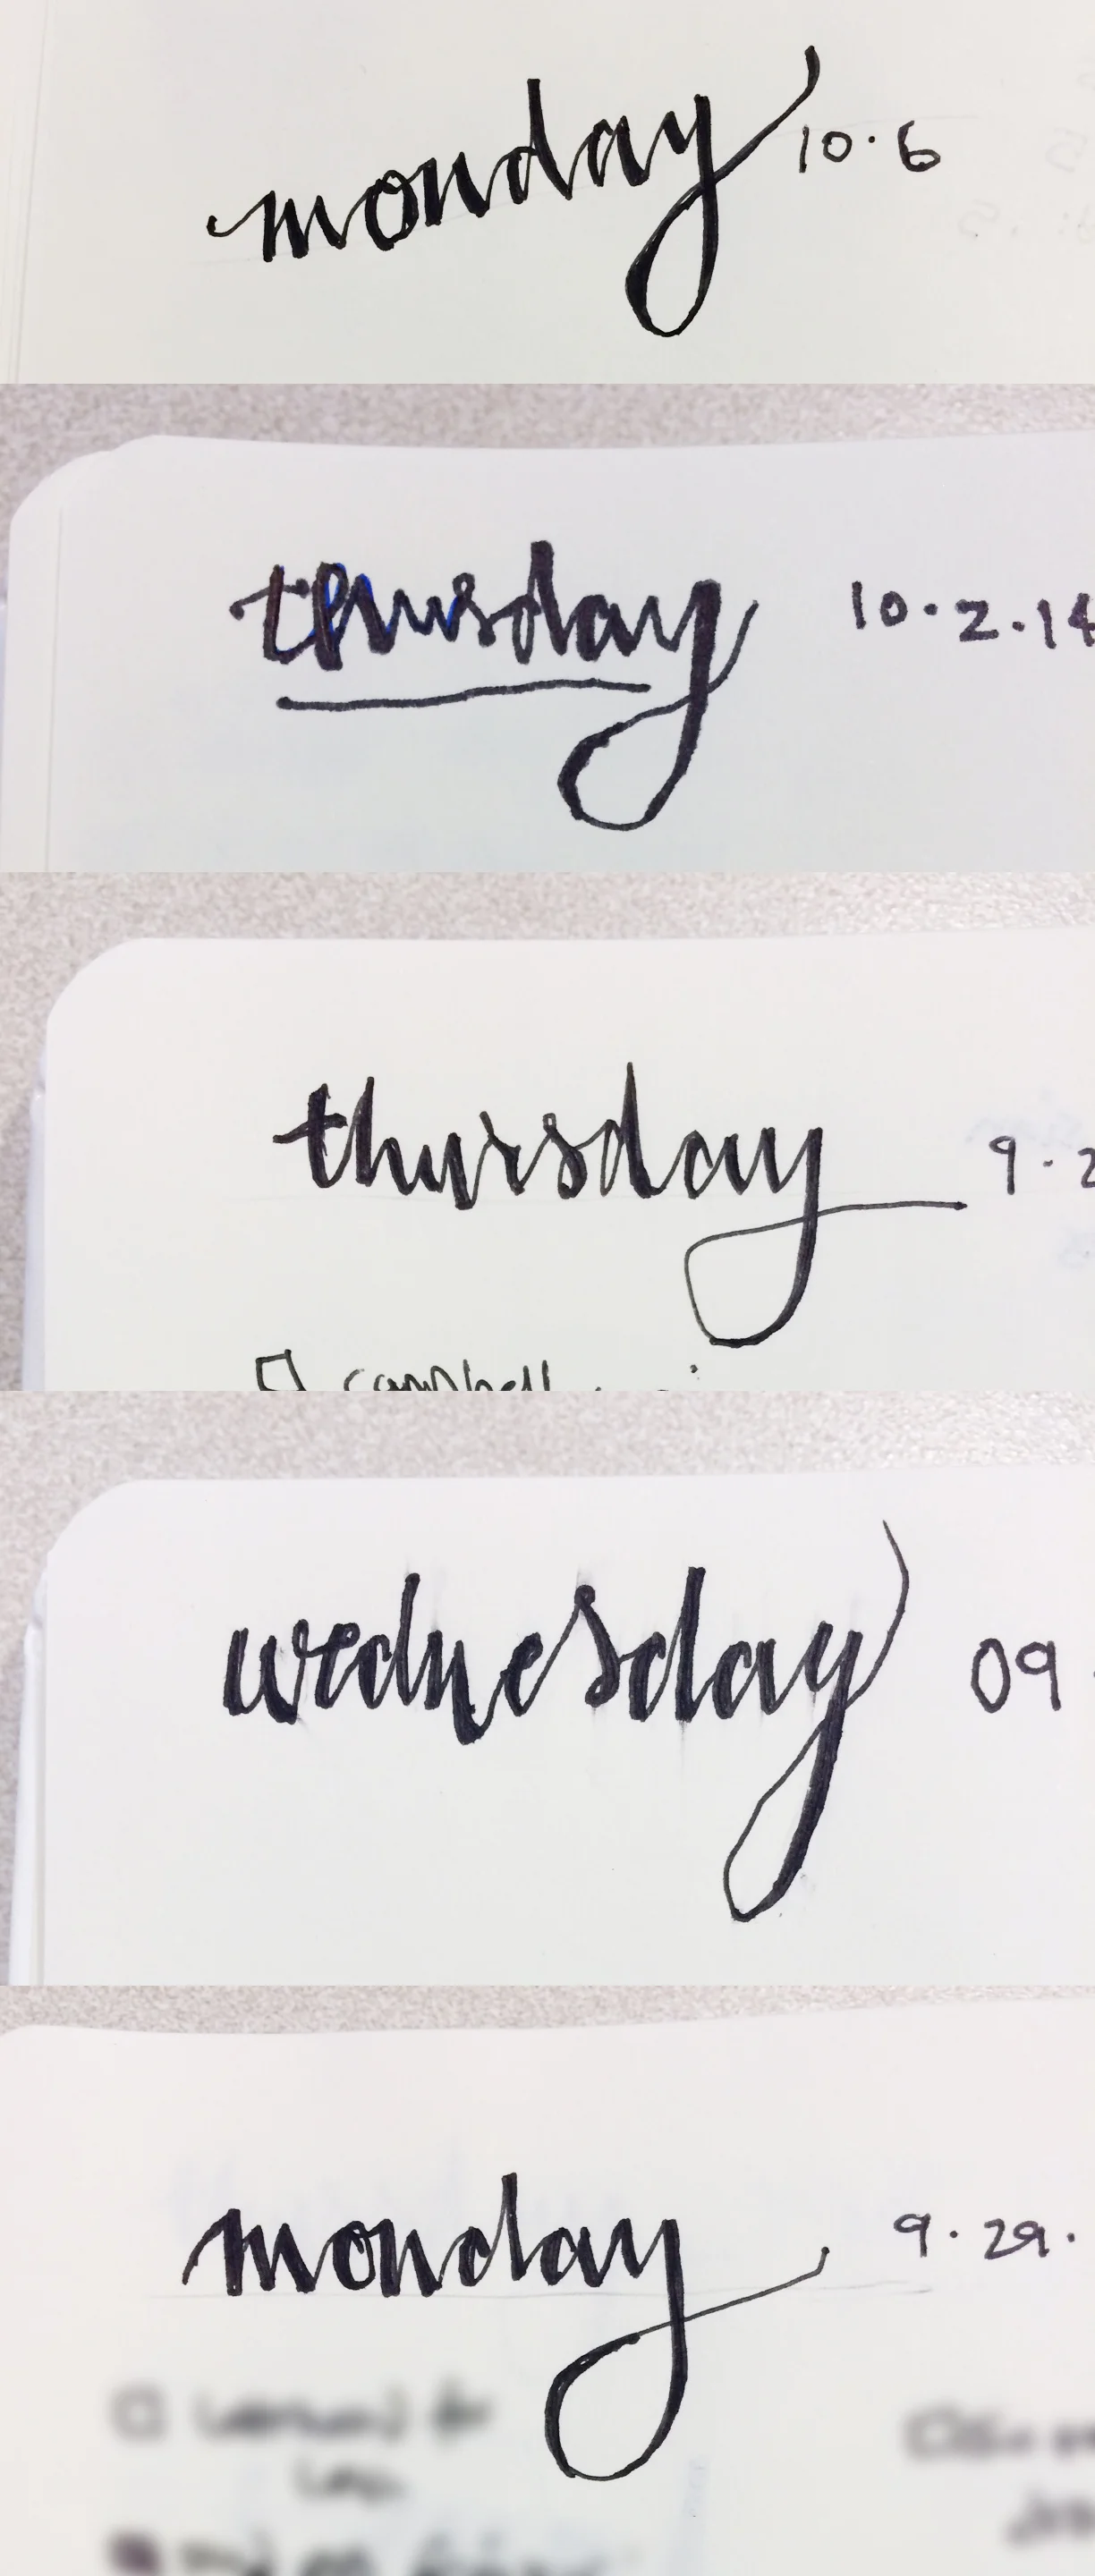 monday 10.6
thursday 10.2.14
thursday 9.2
campbell
wednesday 09
monday 9.29.